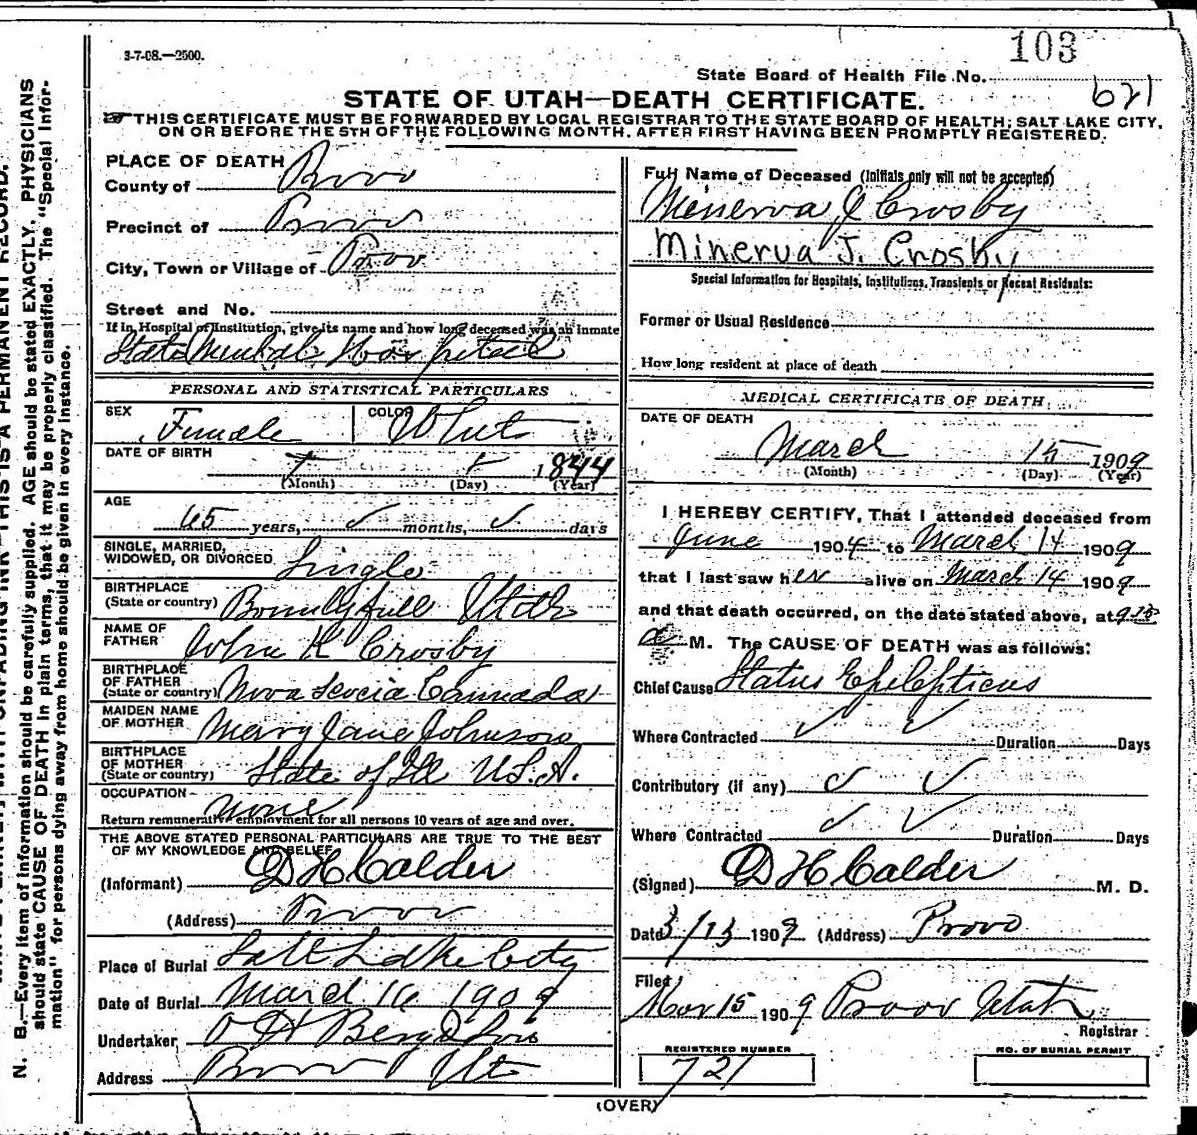 3-7-08.—2500.
103
State Board of Health File No.
621
STATE OF UTAH—DEATH CERTIFICATE.
THIS CERTIFICATE MUST BE FORWARDED BY LOCAL REGISTRAR TO THE STATE BOARD OF HEALTH; SALT LAKE CITY,
ON OR BEFORE THE 5TH OF THE FOLLOWING MONTH. AFTER FIRST HAVING BEEN PROMPTLY REGISTERED.
PLACE OF DEATH
County of Provo
Precinct of Provo
City, Town or Village of Provo
Street and No.
If in Hospital of Institution, give its name and how long deceased was an inmate
State Mental Hospital
PERSONAL AND STATISTICAL PARTICULARS
SEX Female COLOR White
DATE OF BIRTH 1844
(Month) (Day) (Year)
AGE 65 years, months, days
SINGLE, MARRIED,
WIDOWED, OR DIVORCED Single
BIRTHPLACE
(State or country) Bountyfull Utah
NAME OF
FATHER John K Crosby
BIRTHPLACE
OF FATHER
(State or country) Nova Scocia Cannada
MAIDEN NAME
OF MOTHER Mary Jane Johnson
BIRTHPLACE
OF MOTHER
(State or country) State of Ill U.S.A.
OCCUPATION None
Return remunerative employment for all persons 10 years of age and over.
THE ABOVE STATED PERSONAL PARTICULARS ARE TRUE TO THE BEST
OF MY KNOWLEDGE AND BELIEF
(Informant) D H Calder
(Address) Provo
Place of Burial Salt Lake City
Date of Burial March 16 1909
Undertaker O H
Address Provo Ut
Full Name of Deceased (Initials only will not be accepted)
Minerva J Crosby
Minerva J. Crosby
Special Information for Hospitals, Institutions, Transients or Recent Residents:
Former or Usual Residence
How long resident at place of death
MEDICAL CERTIFICATE OF DEATH
DATE OF DEATH
March 15 1909
(Month) (Day) (Year)
I HEREBY CERTIFY, That I attended deceased from
June 1904 to March 14 1909
that I last saw her alive on March 14 1909
and that death occurred, on the date stated above, at
M. The CAUSE OF DEATH was as follows:
Chief Cause Status Epilepticus
Where Contracted Duration Days
Contributory (if any)
Where Contracted Duration Days
(Signed) D H Calder M. D.
Date 3/15 1909 (Address) Provo
Filed
Mar 15 1909 Provo Utah
Registrar
REGISTERED NUMBER
721
NO. OF BURIAL PERMIT
(OVER)
N. B.—Every item of information should be carefully supplied. AGE should be stated EXACTLY. PHYSICIANS
should state CAUSE OF DEATH in plain terms, that it may be properly classified. The "Special Infor-
mation" for persons dying away from home should be given in every instance.